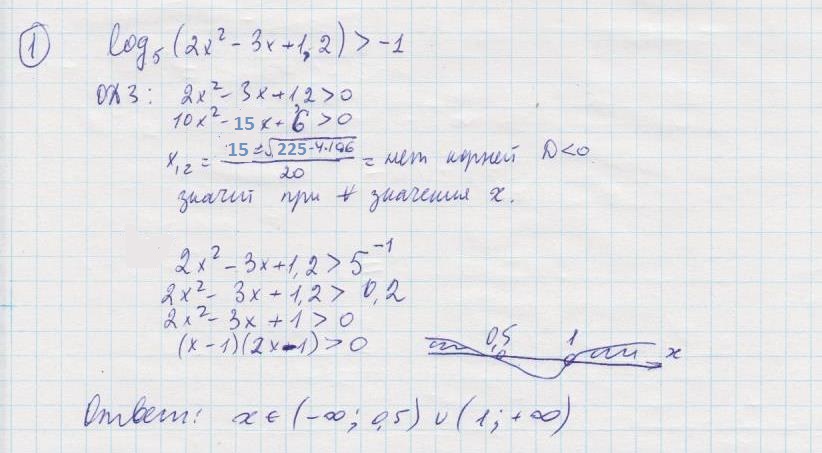 1 log₅(2x² - 3x + 1,2) > -1
ОДЗ: 2x² - 3x + 1,2 > 0
10x² - 15x + 6 > 0
x₁,₂ = (15 ± √(225-4·10·6))/20 = нет корней D<0
значит при ∀ значения x.
2x² - 3x + 1,2 > 5⁻¹
2x² - 3x + 1,2 > 0,2
2x² - 3x + 1 > 0
(x - 1)(2x - 1) > 0
0,5 1 x
Ответ: x ∈ (-∞; 0,5) ∪ (1; +∞)